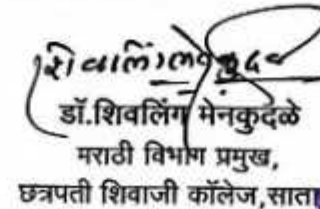 डॉ.शिवलिंग मेनकुदळे
मराठी विभाग प्रमुख,
छत्रपती शिवाजी कॉलेज,